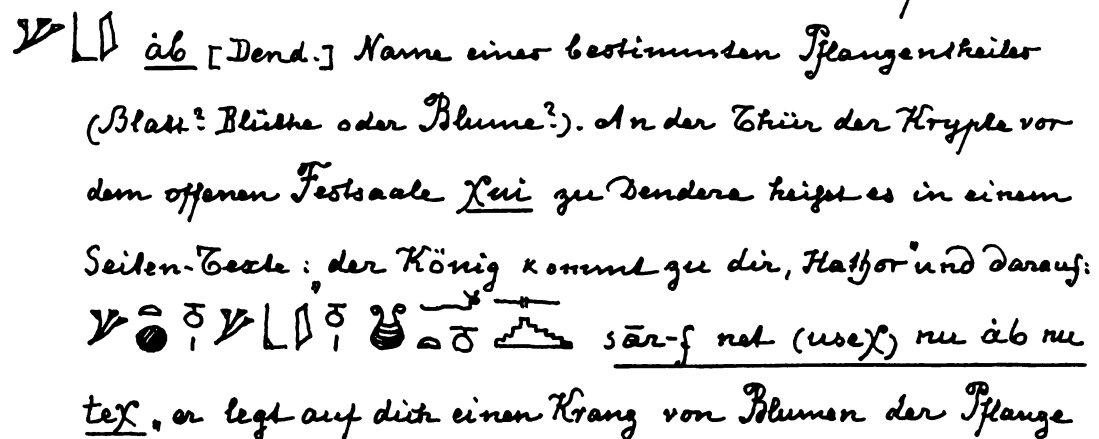 àb [Dend.] Name einer bestimmten Pflanzentheiles
(Blatt? Blüthe oder Blume?). An der Thür der Krypte vor
dem offenen Festsaale χui zu Dendera heifst es in einem
Seiten-Texte: „der König kommt zu dir, Hathor" und darauf:
sār-f net (useχ) nu àb nu
teχ „er legt auf dich einen Kranz von Blumen der Pflanze